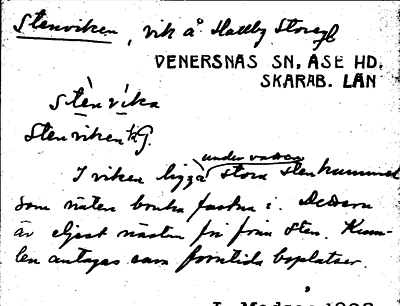 Stenviken, vik å Hattby Storegf
VENERSNÄS SN, ÅSE HD.
SKARAB. LÄN
stènvíka
Stenviken
I viken ligga under vattnet stora stenkummel
som näten bruka fastna i. Dessom
är eljest nästan fri från sten. Kum-
len antagas vara forntida boplatser.